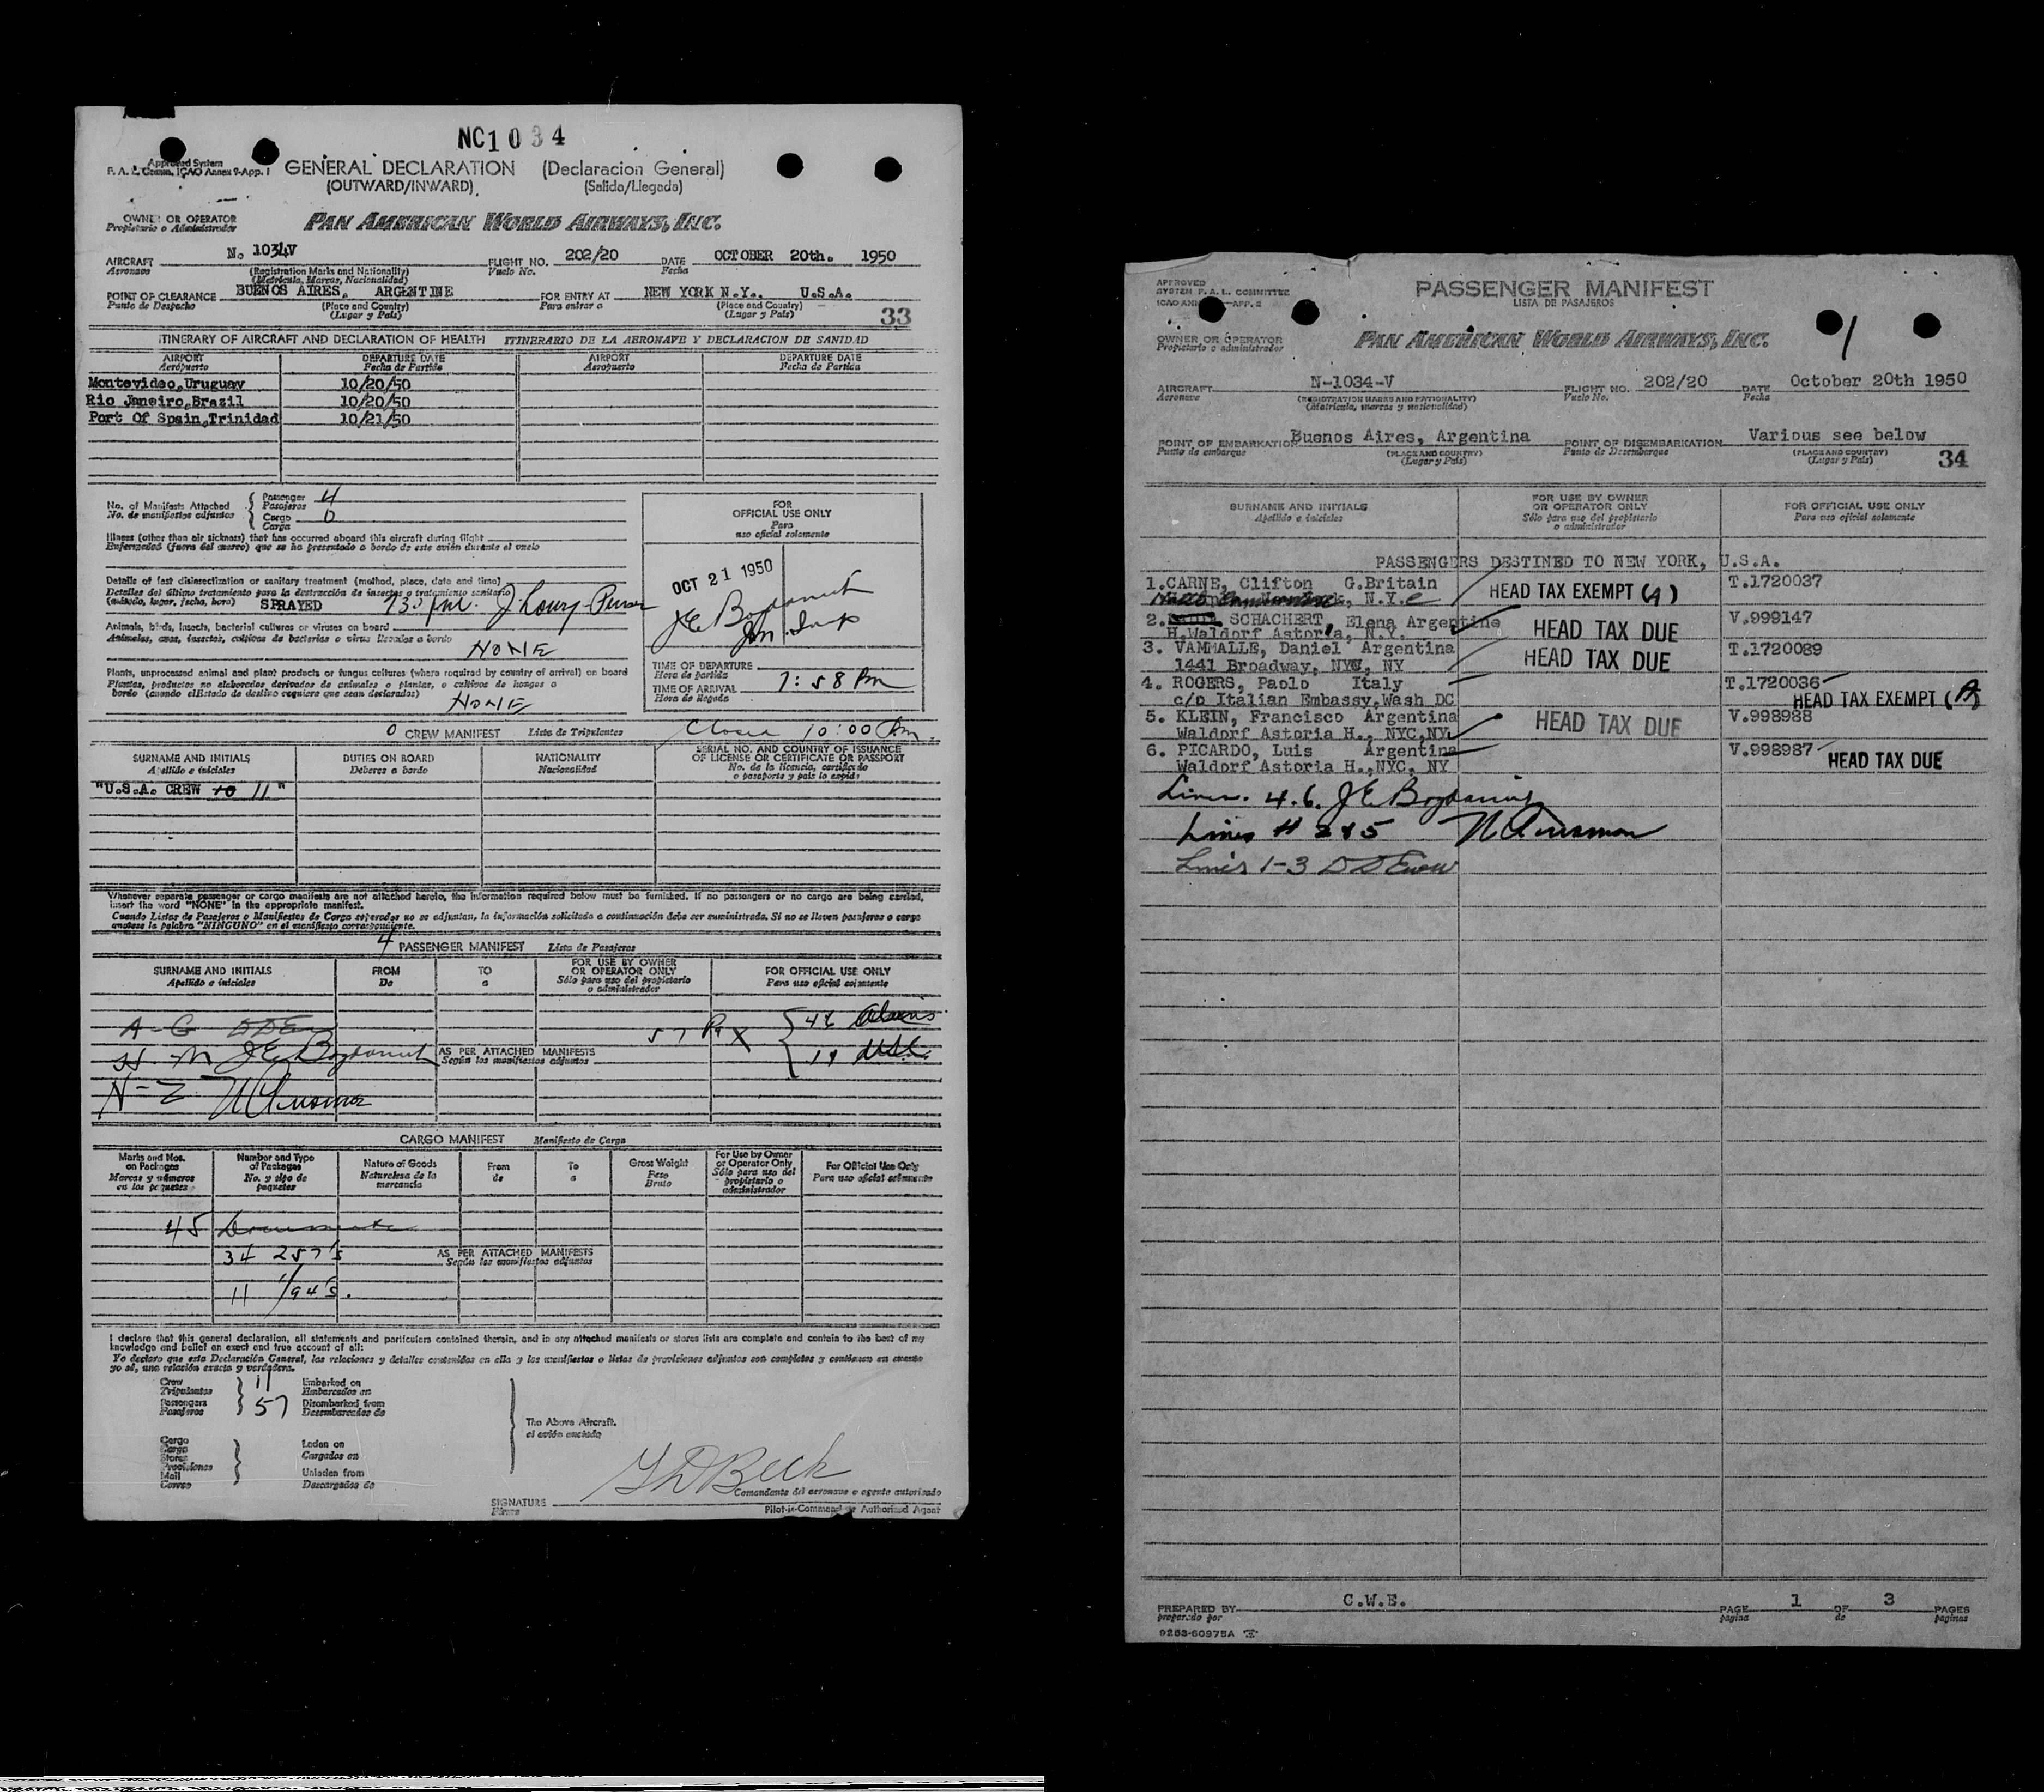 NC1034
Approved System
F. A. L. Comm. ICAO Annex 9-App. 1
GENERAL DECLARATION (Declaracion General)
(OUTWARD/INWARD) (Salida/Llegada)
OWNER OR OPERATOR
Propietario o Administrador
PAN AMERICAN WORLD AIRWAYS, INC.
AIRCRAFT N. 1034V FLIGHT NO. 202/20 DATE OCTOBER 20th. 1950
Aeronave (Registration Marks and Nationality) Vuelo No. Fecha
(Matricula, Marcas, Nacionalidad)
POINT OF CLEARANCE BUENOS AIRES, ARGENTINE FOR ENTRY AT NEW YORK N.Y., U.S.A.
Punto de Despacho (Place and Country) Para entrar a (Place and Country)
(Lugar y País) (Lugar y País)
33
ITINERARY OF AIRCRAFT AND DECLARATION OF HEALTH ITINERARIO DE LA AERONAVE Y DECLARACION DE SANIDAD
AIRPORT DEPARTURE DATE AIRPORT DEPARTURE DATE
Aeropuerto Fecha de Partida Aeropuerto Fecha de Partida
Montevideo,Uruguay 10/20/50
Rio Janeiro,Brazil 10/20/50
Port Of Spain,Trinidad 10/21/50
No. of Manifests Attached Passenger 4
No. de manifiestos adjuntos Pasajeros
Cargo 0
Carga
Illness (other than air sickness) that has occurred aboard this aircraft during flight
Enfermedad (fuera del mareo) que se ha presentado a bordo de este avión durante el vuelo
Details of last disinsectization or sanitary treatment (method, place, date and time)
Detalles del último tratamiento para la destrucción de insectos o tratamiento sanitario
(método, lugar, fecha, hora) SPRAYED
Animals, birds, insects, bacterial cultures or viruses on board
Animales, aves, insectos, cultivos de bacterias o virus llevados a bordo
NONE
Plants, unprocessed animal and plant products or fungus cultures (where required by country of arrival) on board
Plantas, productos no elaborados derivados de animales o plantas, o cultivos de hongos a
bordo (cuando el Estado de destino requiera que sean declarados)
NONE
FOR
OFFICIAL USE ONLY
Para
uso oficial solamente
OCT 21 1950
TIME OF DEPARTURE
Hora de partida
TIME OF ARRIVAL 7:58 Pm
Hora de llegada
Closed 10:00 Pm.
0 CREW MANIFEST Lista de Tripulantes
SURNAME AND INITIALS DUTIES ON BOARD NATIONALITY SERIAL NO. AND COUNTRY OF ISSUANCE
OF LICENSE OR CERTIFICATE OR PASSPORT
Apellido e iniciales Deberes a bordo Nacionalidad No. de la licencia, certificado
o pasaporte y país lo expide
"U.S.A. CREW 10 11"
Whenever separate passenger or cargo manifests are not attached hereto, the information required below must be furnished. If no passengers or no cargo are being carried,
insert the word "NONE" in the appropriate manifest.
Cuando Listas de Pasajeros o Manifiestos de Carga separados no se adjuntan, la información solicitada a continuación debe ser suministrada. Si no se lleven pasajeros o carga
anotese la palabra "NINGUNO" en el manifiesto correspondiente.
4 PASSENGER MANIFEST Lista de Pasajeros
SURNAME AND INITIALS FROM TO FOR USE BY OWNER
OR OPERATOR ONLY FOR OFFICIAL USE ONLY
Apellido e iniciales De a Sólo para uso del propietario
o administrador Para uso oficial solamente
A-G
57 Pax
46 Aliens
H-M
AS PER ATTACHED MANIFESTS
Según los manifiestos adjuntos
11 USC
N-Z
CARGO MANIFEST Manifiesto de Carga
Marks and Nos.
on Packages
Marcas y números
en los paquetes
Number and Type
of Packages
No. y tipo de
paquetes
Nature of Goods
Naturaleza de la
mercancia
From
de
To
a
Gross Weight
Peso
Bruto
For Use by Owner
or Operator Only
Sólo para uso del
propietario o
administrador
For Official Use Only
Para uso oficial solamente
45 Documents
34 257's
AS PER ATTACHED MANIFESTS
Según los manifiestos adjuntos
11 I/94's.
I declare that this general declaration, all statements and particulars contained therein, and in any attached manifests or stores lists are complete and contain to the best of my
knowledge and belief an exact and true account of all:
Yo declaro que esta Declaración General, las relaciones y detalles contenidos en ella y los manifiestos o listas de provisiones adjuntos son completos y contienen en cuanto
yo sé, una relación exacta y verdadera.
Crew 11 Embarked on
Tripulantes Embarcados en
Passengers 57 Disembarked from
Pasajeros Desembarcados de
The Above Aircraft.
el avión anotado
Cargo
Carga
Stores
Provisiones
Mail
Correo
Laden on
Cargados en
Unladen from
Descargados de
SIGNATURE
Firma
Comandante del aeronave o agente autorizado
Pilot-in-Command or Authorized Agent
APPROVED
SYSTEM F. A. L. COMMITTEE
ICAO ANNEX 9-APP. 2
PASSENGER MANIFEST
LISTA DE PASAJEROS
OWNER OR OPERATOR
Propietario o administrador
PAN AMERICAN WORLD AIRWAYS, INC.
AIRCRAFT N-1034-V FLIGHT NO. 202/20 DATE October 20th 1950
Aeronave (REGISTRATION MARKS AND NATIONALITY) Vuelo No. Fecha
(Matricula, marcas y nacionalidad)
POINT OF EMBARKATION Buenos Aires, Argentina POINT OF DISEMBARKATION Various see below
Punto de embarque (PLACE AND COUNTRY) Punto de Desembarque (PLACE AND COUNTRY)
(Lugar y País) (Lugar y País)
34
SURNAME AND INITIALS FOR USE BY OWNER
OR OPERATOR ONLY FOR OFFICIAL USE ONLY
Apellido e iniciales Sólo para uso del propietario
o administrador Para uso oficial solamente
PASSENGERS DESTINED TO NEW YORK, U.S.A.
1.CARNE, Clifton G.Britain HEAD TAX EXEMPT (A) T.1720037
N.Y.
2. SCHACHERT, Elena Argentine HEAD TAX DUE V.999147
H.Waldorf Astoria, N.Y.
3. VAMMALLE, Daniel Argentina HEAD TAX DUE T.1720089
1441 Broadway, NYC, NY
4. ROGERS, Paolo Italy T.1720036
c/o Italian Embassy,Wash DC HEAD TAX EXEMPT (A)
5. KLEIN, Francisco Argentina HEAD TAX DUE V.998988
Waldorf Astoria H., NYC,NY
6. PICARDO, Luis Argentina V.998987 HEAD TAX DUE
Waldorf Astoria H.,NYC, NY
Lines 4.6.
Lines # 2 & 5
Lines 1-3
PREPARED BY C.W.E. PAGE 1 OF 3 PAGES
preparado por pagina de paginas
9263-60975A